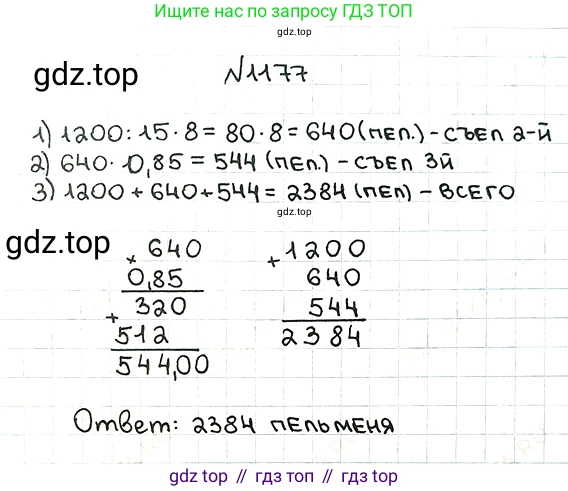 Ищите нас по запросу ГДЗ ТОП
gdz.top
gdz.top
№1177
1) 1200:15·8=80·8=640(пел.)-съел 2-й
2) 640·0,85=544(пел.)-съел 3й
3) 1200+640+544=2384(пел)-всего
gdz.top
gdz.top
× 640
0,85
320
+
512
544,00
+ 1200
640
544
2384
Ответ: 2384 пельменя
gdz.top
gdz.top // гдз топ // гдз.top